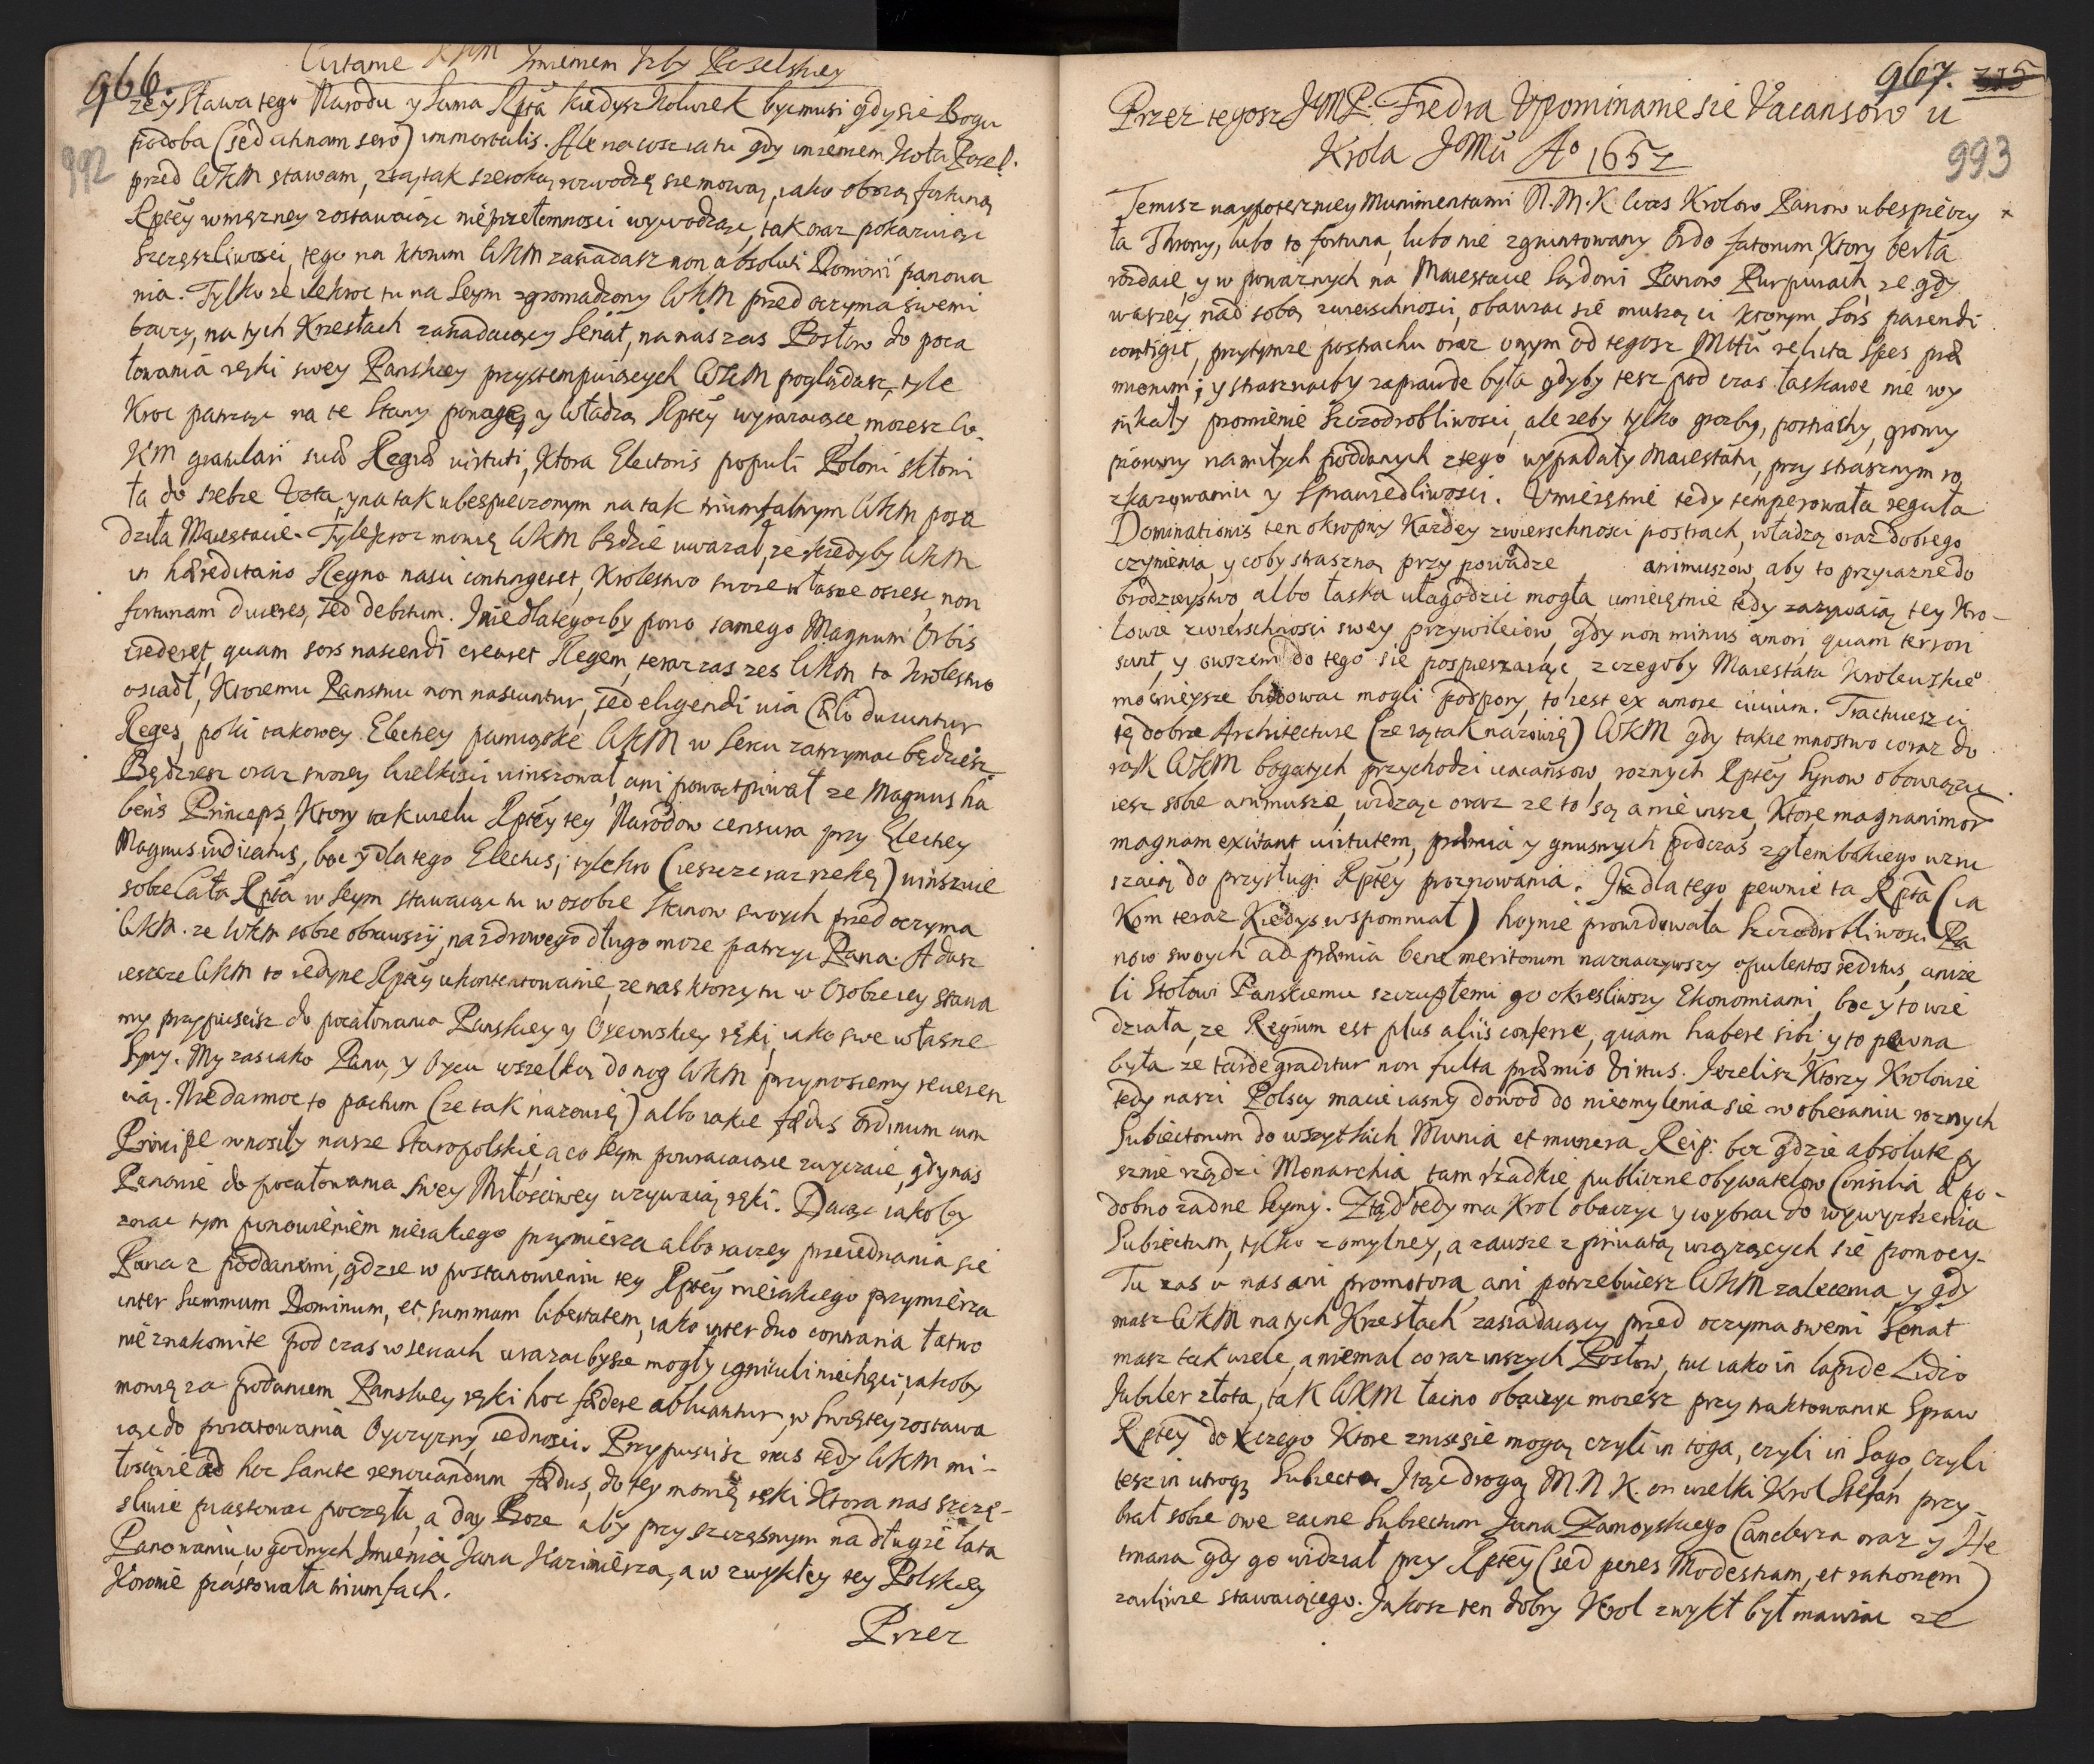 966.
Witanie KJM Imieniem Izby Poselskiey
992
ze y Sława tego Narodu y Sama Rpta kiedysz kolwiek byc musi gdy sie Bogu
podoba (sed utinam sero) immortalis. Ale na cosz ia tu gdy imieniem Koła Posel.
przed WKM stawam, z tą tak szeroką rozwodzę sie mową, iako oboią fortuną
Rptey w mezney zostawaiąc nieprzełomnosci wywodząc, tak oraz pokazuiąc
szczęszliwosci, tego na ktorym WKM zasiadasz non absoluti Dominii panowa
nia. Tylko ze ilekroc tu na Seym zgromadzony WKM przed oczyma swemi
baczy, na tych Krzesłach zasiadaiący Senat, na nas zas Posłow do poca
łowania ręki swey Panskiey przystempuiących WKM poglądasz, tyle
kroc patrząc na te Stany powagę y władzą Rptey wyrazaiące, mozesz W.
KM gratulari suæ Regiæ virtuti, ktora Electoris populi Poloni skłoni
ła do siebie Vota, y na tak ubespieczonym na tak triumfalnym WKM posa
dziła Maiestacie. Tylekroc mowię WKM będzie uwazał, ze kiedyby WKM
in hæreditario Regno nasci contingeret, Krolestwo swoie własne osiesc, non
fortunam duceres, sed debitum. I nie dla tegoz by pono samego Magnum Orbis
crederet, quam sors nascendi crearet Regem, teraz zas zes WKM to Krolestwo
osiadł, ktoremu Panstwu non nascuntur, sed eligendi via Cælo ducuntur
Reges, poki takowey Elekcyey pamiątkę WKM w sercu zatrzymac będziesz
Będziesz oraz swoiey wielkosci winszował, ani powątpiwał ze Magnus ha
beris Princeps, Ktory tak wielu Rptey tey Narodow censura przy Elekcyey
Magnus iudicatus, boc y dla tego Electus; tylekroc (ieszcze raz rzekę) winszuie
sobie Cała Rpta w Seym stawaiąc tu w osobie Stanow swoych przed oczyma
WKM. ze WKM sobie obrawszy, na zdrowego długo moze patrzyc Pana. A dasz
ieszcze WKM to iedyne Rptey ukontentowanie, ze nas ktorzy tu w Osobie iey stawa
my przypuscisz do pocałowania Panskiey y Oycowskiey ręki, iako swe własne
Syny. My zas iako Panu, y Oycu wszelką do nog WKM przynosiemy reveren
cią. Nie darmoc to pactum (ze tak nazowię) albo iakie fædus ordinum cum
Principe wnosiły nasze Staropolskie, a co Seym powracaiące zwyczaie, gdy nas
Panowie do pocałowania swey Miłosciwey wzywaią ręki. Daiąc iakoby
znac tym ponowieniem nieiakiego przymierza albo raczey przeiednania sie
Pana z poddanemi, gdzie w postanowieniu tey Rptey nieiakiego przymierza
inter Summum Dominum, et summam libertatem, iako inter duo contraria łatwo
nieznakomite pod czas w sercach urazac by sie mogły igniculi niechęci, iakoby
mowię za podaniem Panskiey ręki hoc fædere abluantur, w swiętey zostawa
iąc do poratowania Oyczyzny iednosci. Przypuscisz nas tedy WKM mi-
łosciwie ad hoc Sancte renovandum fædus, do tey mowię ręki ktora nas szczę-
sliwie piastowac poczęła, a day Boze aby przy szczęsnym na długie lata
Panowaniu w godnych Imienia Jana Kazimierza, a w zwykłey tey Polskiey
Koronie piastowała triumfach.
Przez
967. 315
993
Przez tegosz JMP. Fredra Upominanie sie Vacansow u
Krola JMci Ao 1652
Temisz naypotezniey Munimentami N.M.K. Was Krolow Panow ubespieczy
ła Throny, lubo to fortuna, lubo nie zgruntowany Ordo fatorum, Ktory berła
rozdaie, y w powaznych na Maiestacie sądoni Panow Purpurach, ze gdy
waszey nad sobą zwierzchnosci, obawiac sie muszą ci ktorym Sors parendi
contigit, przytymze postrachu oraz onym od tegosz Mttu relucta Spes præ
miorum; y strasznaby zaprawde była gdyby tesz pod czas łaskawe nie wy
nikały promienie szczodrobliwosci, ale zeby tylko grozby, postrachy, gromy
pioruny na miłych poddanych z tego wypadały Maiestatu, przy strasznym ro
zkazowaniu y Sprawiedliwosci. Umieiętnie tedy temperowała reguła
Dominationis ten okropny Kazdey zwierschnosci postrach, władzą oraz dobrego
czynienia, y coby straszną przy powadze animuszow, aby to przyiazne do
brodzieystwo, albo łaska ułagodzic mogła umieiętnie tedy zazywaią tey Kro-
lowie zwierschnosci swey przywileiow, gdy non minus amori, quam terrori
sunt, y owszem do tego sie pospieszaiąc, z czegoby Maiestata Krolewskie
mocnieysze budowac mogli podpory, to iest ex amore civium. Tractuiesz ci
tę dobrze Architecture (ze ią tak nazowię) WKM gdy takie mnostwo coraz do
rąk WKM bogatych przychodzi vacansow, roznych Rptey Synow obowiązu
iesz sobie animusze, widząc oraz ze to są a nie insze, Ktore magnanimos
magnam excitant virtutem, præmia y gnusnych podczas z głembokiego wzru
szaią do przysługi Rptey proznowania. I to dla tego pewnie ta Rpta (ia
kom teraz kiedys wspomniał) hoynie prowidowała szczodrobliwosci Pa
now swoych ad præmia bene meritorum naznaczywszy opulentos reditus, anize
li Stołowi Panskiemu szczupłemi go okresliwszy Ekonomiami, boc y to wie
działa, ze Regium est plus aliis conferre, quam habere sibi; y to pewna
była ze tarde graditur non fulta præmio Virtus. Jezelisz Ktorzy Krolowie
tedy naszi Polscy macie iasny dowod do nieomylenia sie w obieraniu roznych
Subiectorum do wszytkich Munia et munera Reip: boc gdzie absolute py
sznie rządzi Monarchia tam rzadkie publiczne obywatelow Consilia a po-
dobno zadne Seymy. Ztąd tedy ma Krol obaczyc y wybrac do wywyzszenia
Subiectum, tylko z omylney, a zawsze z privatą wiązących sie pomocy.
Tu zas u nas ani promotora, ani potrzebuiesz WKM zalecenia, y gdy
masz WKM na tych Krzesłach zasiadaiący przed oczyma swemi Senat
masz tak wiele, a niemal co raz inszych Posłow, tuc iako in lapide Lidio
Jubiler złota, tak WKM łacno obaczyc mozesz przy traktowaniu Spraw
Rptey do czego Ktore znisc sie mogą czyli in toga, czyli in Sago, czyli
tesz in utroq3 Subiecta. Ita tąc drogą M.N.K. on wielki Krol Stefan przy-
brał sobie owe zacne Subiectum Jana Zamoyskiego Canclerza oraz y He
tmana gdy go widział przy Rptey (sed penes Modestiam, et rationem)
zarliwie stawaiącego. Jakosz ten dobry Krol zwykł był mawiac ze